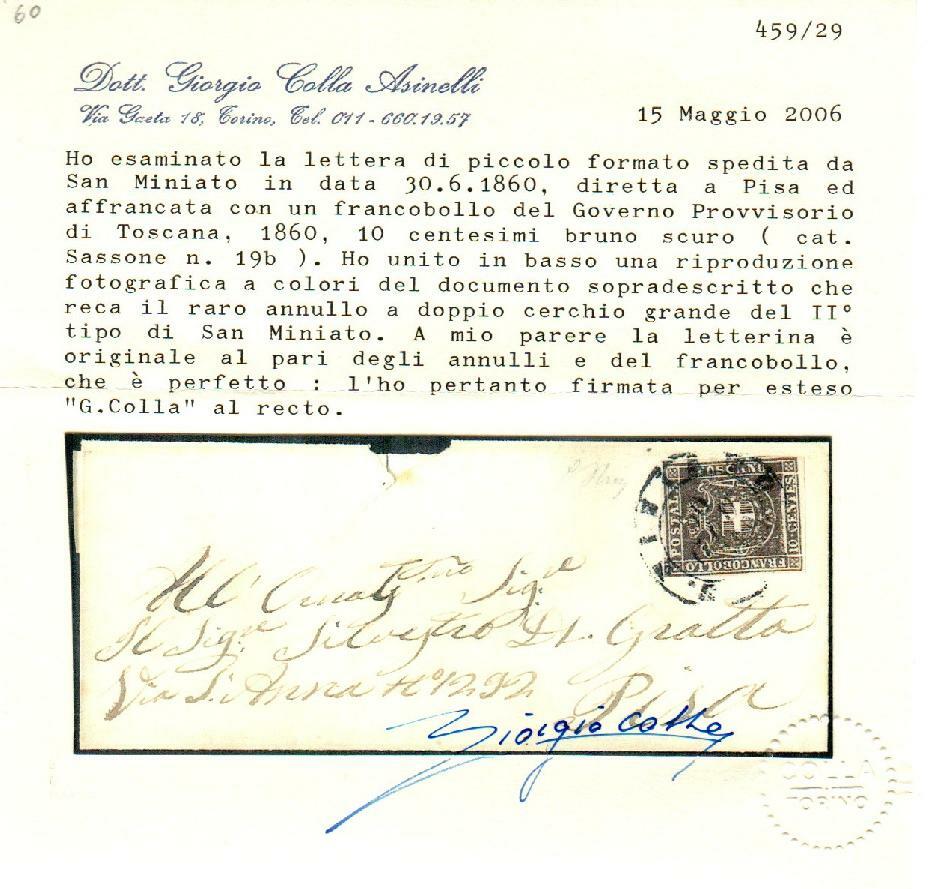 60
459/29
Dott. Giorgio Colla Asinelli
Via Gaeta 18, Torino, Tel. 011 - 660.19.57
15 Maggio 2006
Ho esaminato la lettera di piccolo formato spedita da
San Miniato in data 30.6.1860, diretta a Pisa ed
affrancata con un francobollo del Governo Provvisorio
di Toscana, 1860, 10 centesimi bruno scuro ( cat.
Sassone n. 19b ). Ho unito in basso una riproduzione
fotografica a colori del documento sopradescritto che
reca il raro annullo a doppio cerchio grande del II°
tipo di San Miniato. A mio parere la letterina è
originale al pari degli annulli e del francobollo,
che è perfetto : l'ho pertanto firmata per esteso
"G.Colla" al recto.
TOSCANO
POSTALE
10 CENTES
FRANCOBOLLO
All' Sigre
Il Sigre Silvestro Gratta
Via S. Anna N° 1292
Pisa
Giorgio Colla
COLLA
TORINO